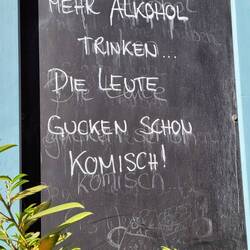 MEHR ALKOHOL
TRINKEN...
DIE LEUTE
GUCKEN SCHON
KOMISCH!